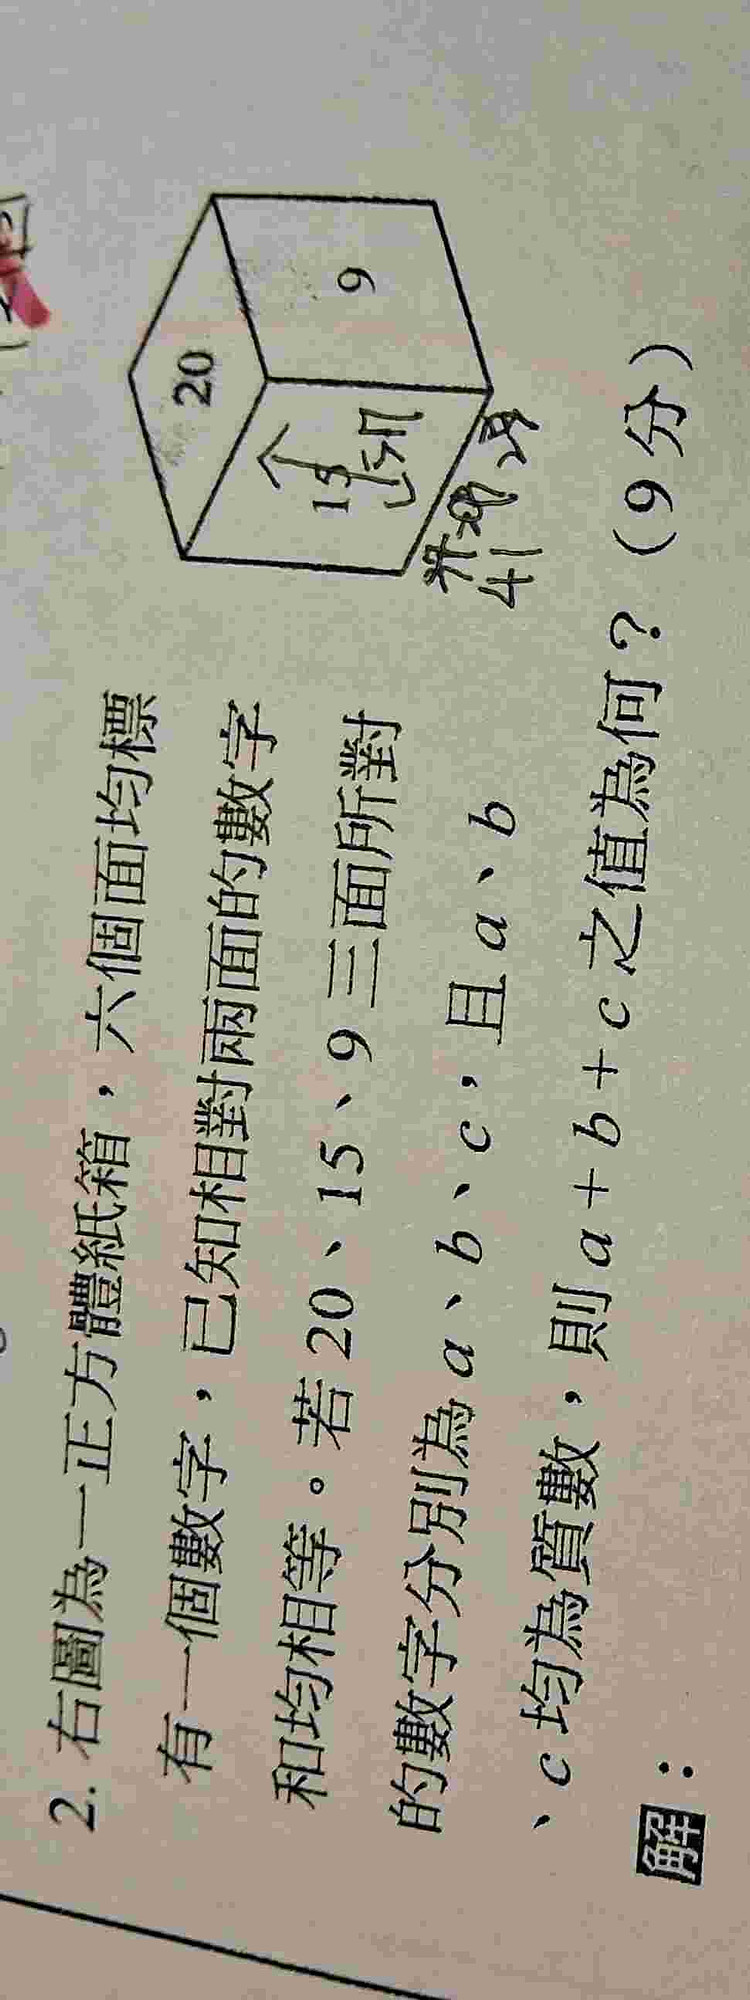 2. 右圖為一正方體紙箱，六個面均標
有一個數字，已知相對兩面的數字
和均相等。若20、15、9三面所對
的數字分別為a、b、c，且a、b
、c均為質數，則a+b+c之值為何？（9分）
解：
20
15
9